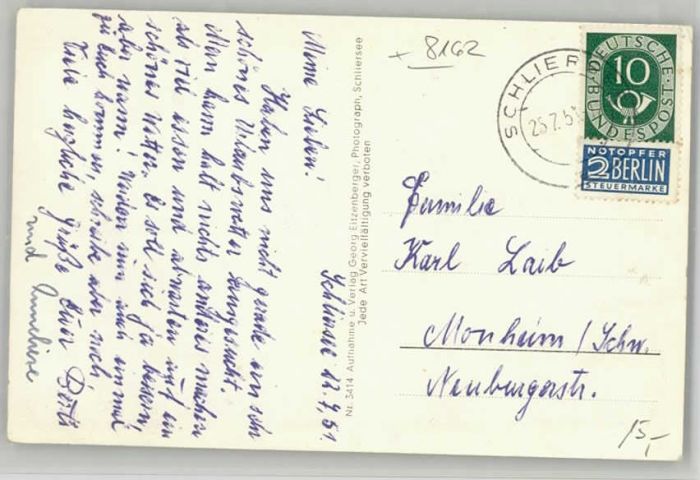 Schliersee 22.7.51
Meine Lieben!
Haben uns nicht gerade ein sehr
schönes Urlaubswetter
Man kann halt nichts anderes machen
als viel essen und abwarten auf ein
schönes Wetter. Es soll sich ja bessern,
aber wann! Werden nun auch einmal
zu Euch kommen, schreibe aber noch
Viele herzliche Grüße Euer
und Anneliese
Nr. 3414 Aufnahme u. Verlag Georg Eitzenberger, Photograph, Schliersee
Jede Art Vervielfältigung verboten
+ 8162
SCHLIER
25.7.51
DEUTSCHE BUNDESPOST
10
NOTOPFER
2 BERLIN
STEUERMARKE
Familie
Karl Laib
Monheim / Schw.
Neuburgerstr.
15,-